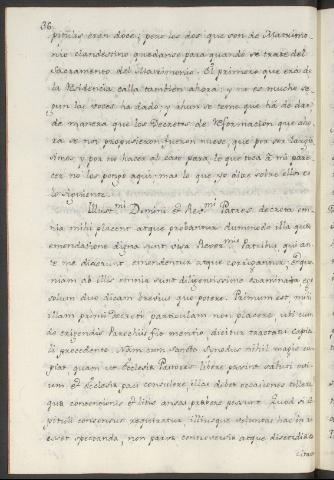 36
pitulos eran doce; pero los dos que son de Matrimo-
nio clandestino quedanse para quando se trate del
Sacramento del Matrimonio. El primero que era de
la Residencia calla tambien ahora; y no es mucho se-
gun las voces ha dado; y ahun se teme que há de dar
de manera que los Decretos de Reformacion que aho-
ra se nos propusieron fueron nueve, que por ser largui-
simos y por no hacer al caso para lo que toca á mi pare-
cer no los pongo aqui, mas lo que yo dixe sobre ellos es
lo siguiente.
Illust.mi Domini et Rev.mi Patres, decreta om-
nia mihi placent atque probantur dummodo illa quæ
emendatione digna sunt visa Rever.mis Patribus qui an-
te me dixerunt emendentur atque corrigantur; et quo-
niam ab illis omnia sunt diligentissime examinata ego
solum duo dicam brevius quo potero. Primum est, mihi
illam primi Decreti particulam non placere, ubi cum
de erigendis Parochiis fit mentio, dicitur tractatu capitu-
li precedente. Nam cum sancta Synodus nihil magis cu-
piat quam ut Ecclesiæ Pastores libere possint saluti ovi-
um, et Ecclesiæ paci consulere illas debet occasiones tollere
quæ contencionis et litis ansas præbere possunt. Quod si ca-
pituli consensus requiratur illiusque voluntas hac in re
esset spectanda, non parva controversia atque discordia ex-
citar